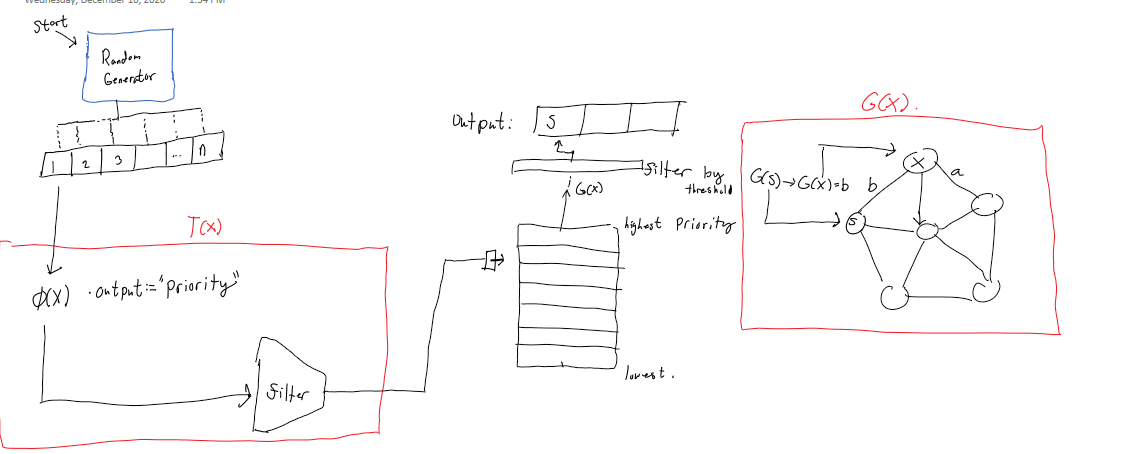 Start
Random
Generator
1 2 3 ... n
T(x)
φ(x) · output := "priority"
filter
Output: S
filter by
threshold
G(x)
highest Priority
lowest.
G(X).
G(s)→G(x)=b b
X
a
S